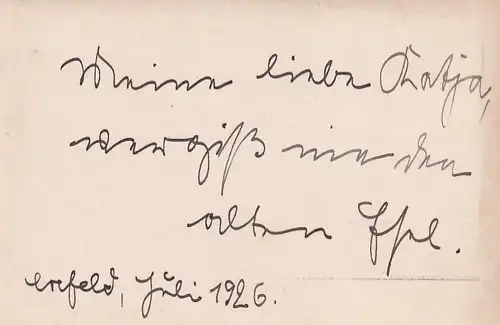 Meine liebe Katja,
vergiß nie den
alten Esel.
Crefeld, Juli 1926.